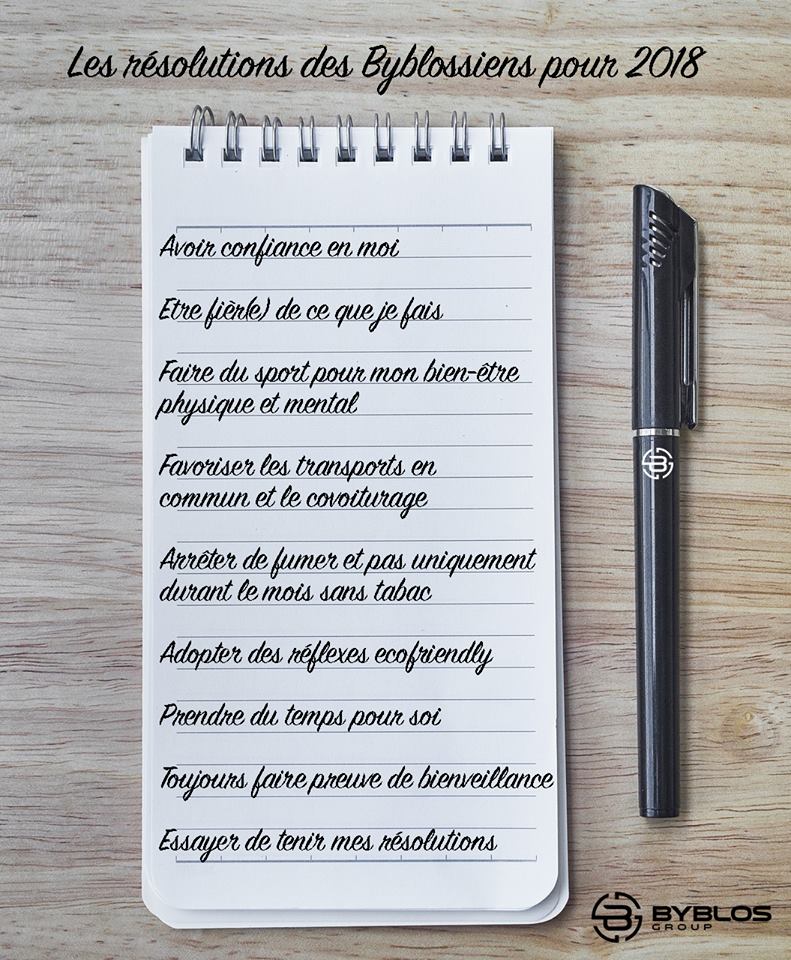 Les résolutions des Byblossiens pour 2018
Avoir confiance en moi
Etre fièr(e) de ce que je fais
Faire du sport pour mon bien-être
physique et mental
Favoriser les transports en
commun et le covoiturage
Arrêter de fumer et pas uniquement
durant le mois sans tabac
Adopter des réflexes ecofriendly
Prendre du temps pour soi
Toujours faire preuve de bienveillance
Essayer de tenir mes résolutions
BYBLOS
GROUP